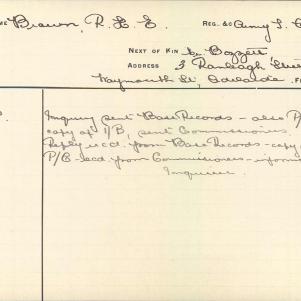 ME Brown, R. E. E. REG. &c Army S. C
NEXT OF KIN
ADDRESS 3 Ranleagh Street
Waymouth St, Adelaide
Inquiry sent Base Records - also P/
copy of I/B, sent Commissioners.
Reply recd. from Base Records - copy
P/C - recd. from Commissioners - inform
Inquirer.